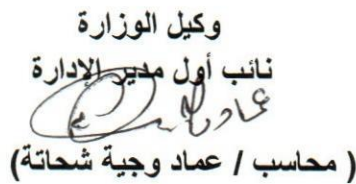 وكيل الوزارة
نائب أول مدير الإدارة
( محاسب / عماد وجية شحاتة)